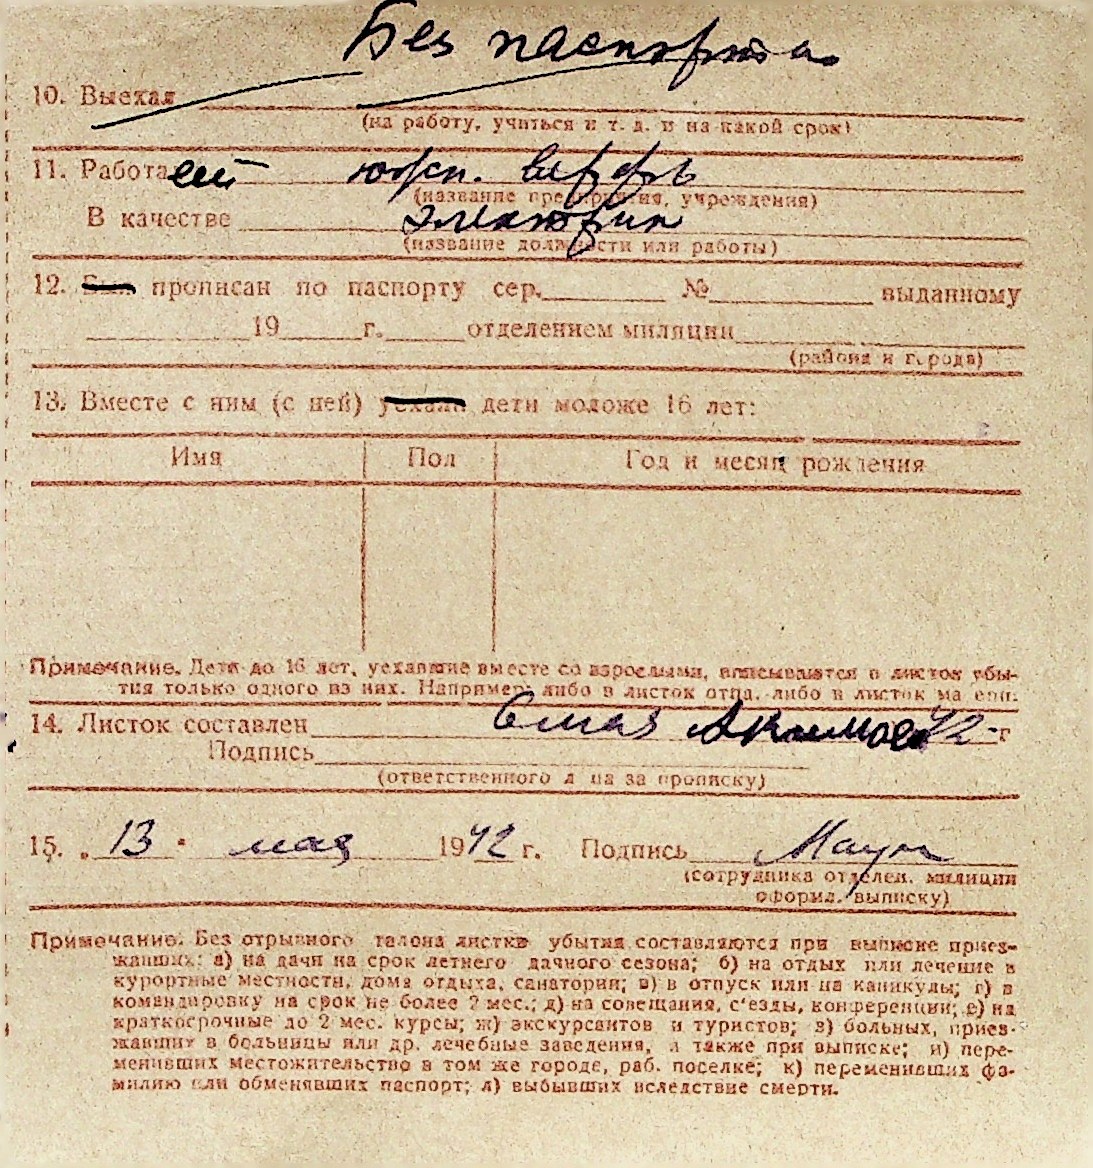 Без паспорта
10. Выехал
(на работу, учиться и т. д. и на какой срок)
11. Работает
(название предприятия, учреждения)
В качестве электрик
(название должности или работы)
12. Был прописан по паспорту сер. № выданному
19 г. отделением милиции
(района и города)
13. Вместе с ним (с ней) уехали дети моложе 16 лет:
Имя Пол Год и месяц рождения
Примечание. Дети до 16 лет, уехавшие вместе со взрослыми, вписываются в листок убы-
тия только одного из них. Например, либо в листок отца, либо в листок матери.
14. Листок составлен 42 г
Подпись
(ответственного лица за прописку)
15. „13" мая 1942 г. Подпись
(сотрудника отделен. милиции
оформ. выписку)
Примечание: Без отрывного талона листки убытия составляются при выписке приез-
жавших: а) на дачи на срок летнего дачного сезона; б) на отдых или лечение в
курортные местности, дома отдыха, санатории; в) в отпуск или на каникулы; г) в
командировку на срок не более 2 мес.; д) на совещания, с'езды, конференции; е) на
краткосрочные до 2 мес. курсы; ж) экскурсантов и туристов; з) больных, приез-
жавших в больницы или др. лечебные заведения, а также при выписке; и) пере-
менивших местожительство в том же городе, раб. поселке; к) переменивших фа-
милию или обменявших паспорт; л) выбывших вследствие смерти.